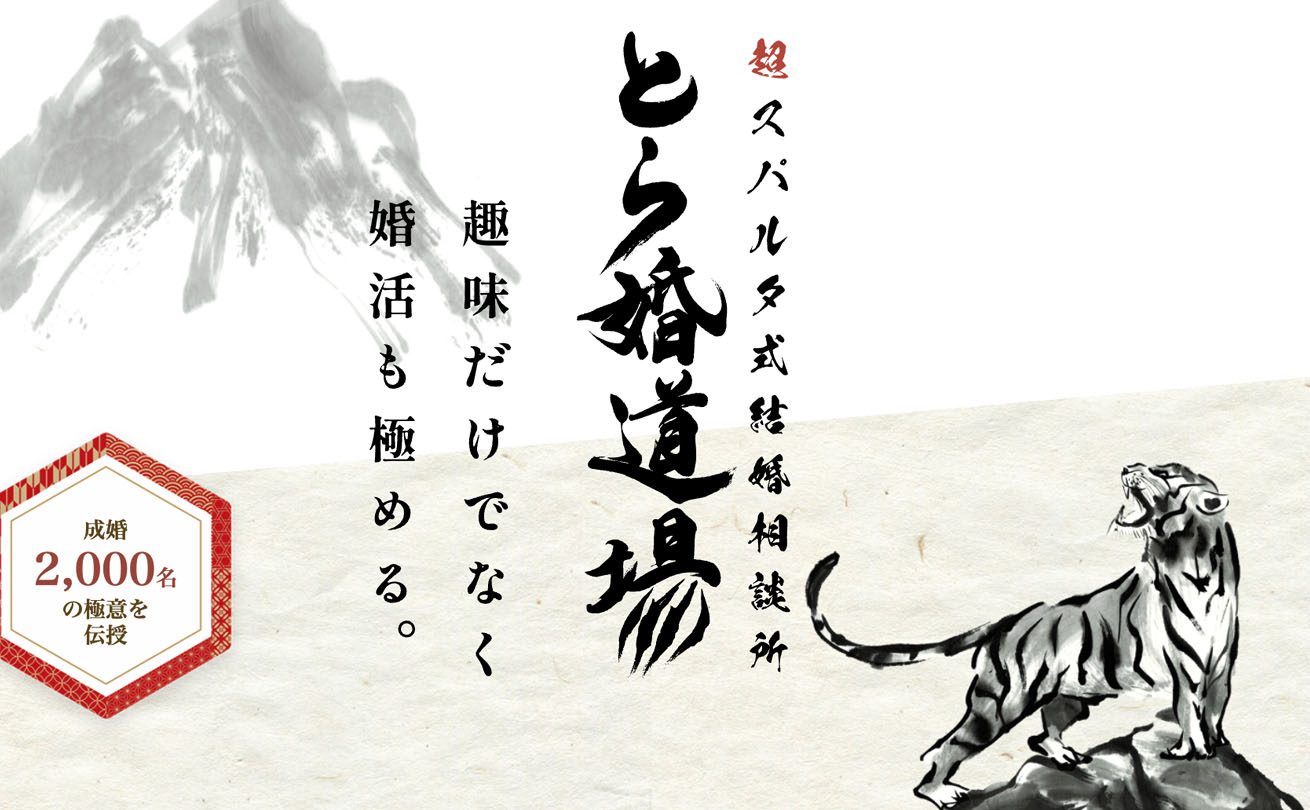 超スパルタ式結婚相談所
とら婚道場
趣味だけでなく
婚活も極める。
成婚
2,000名
の極意を
伝授